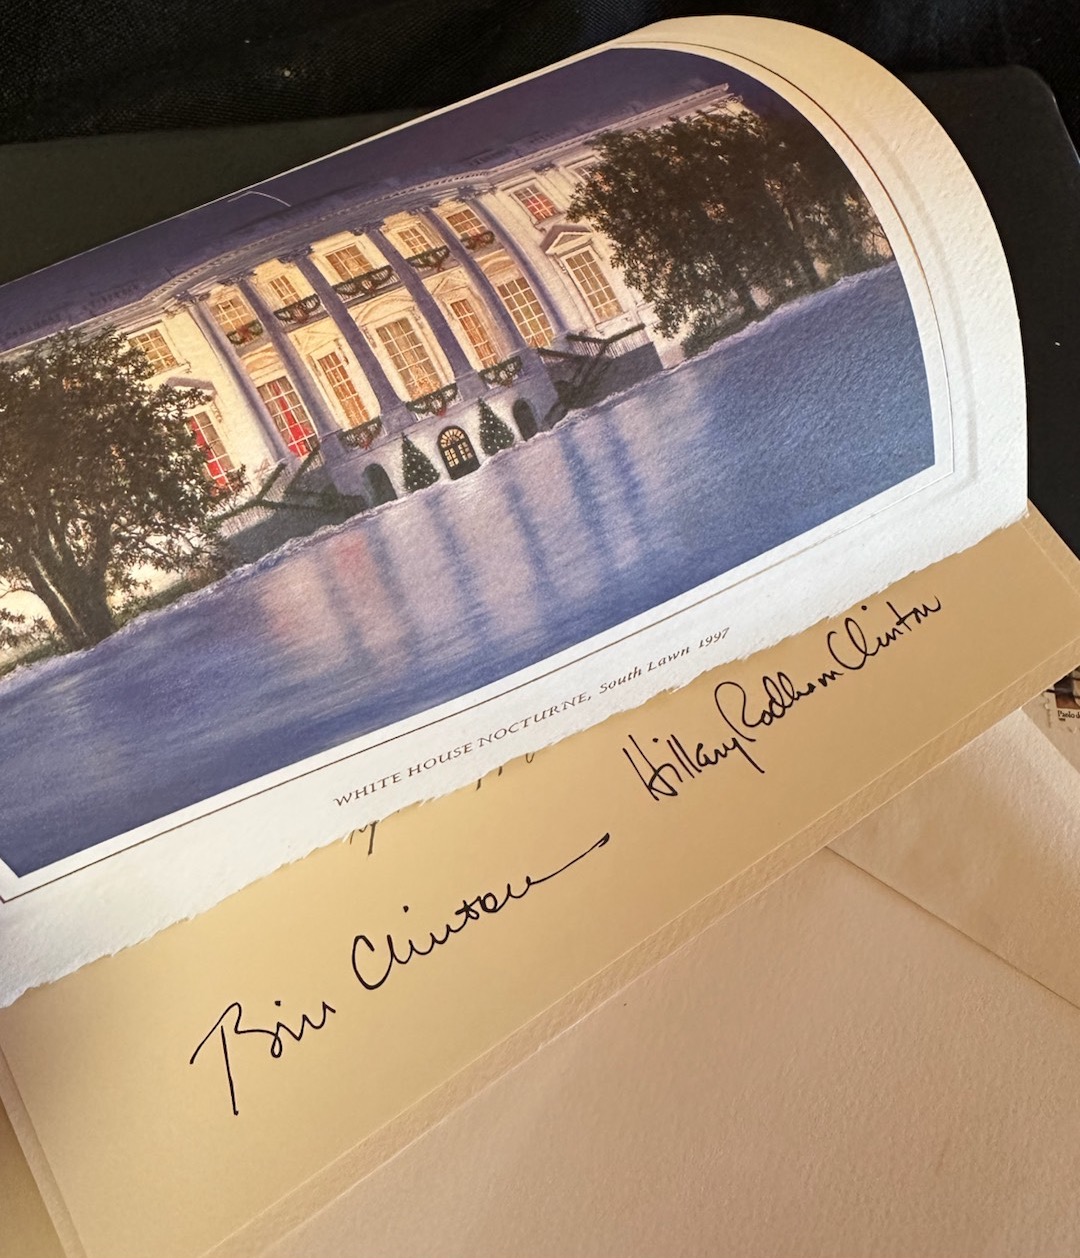 WHITE HOUSE NOCTURNE, South Lawn 1997
Hillary Rodham Clinton
Bill Clinton